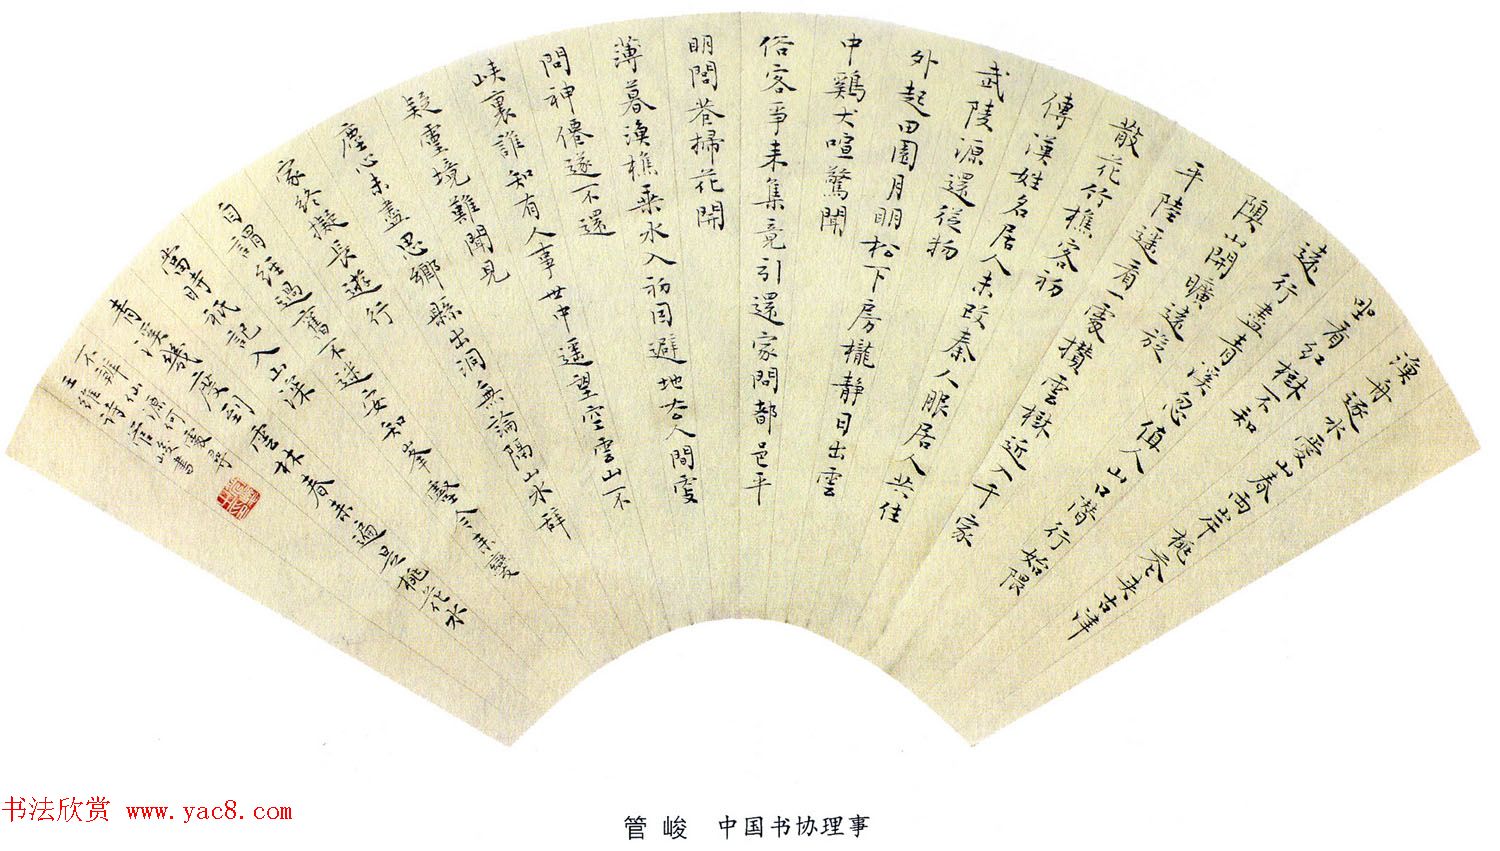 漁舟逐水愛山春兩岸桃花夾古津
坐看紅樹不知
遠行盡青溪忽值人山口潛行始隈
隩山開曠遠旋
平陸遥看一處攢雲樹近入千家
散花竹樵客初
傳漢姓名居人未改秦人服居人共住
武陵源還從物
外起田園月明松下房櫳靜日出雲
中鷄犬喧驚聞
俗客爭来集竟引還家問都邑平
明閭巷掃花開
薄暮漁樵乗水入初因避地去人間處
問神僊遂不還
峡裏誰知有人事世中遥望空雲山不
疑靈境難聞見
塵心未盡思鄉縣出洞無論隔山水辞
家終擬長遊行
自謂經過舊不迷安知峯壑今来變
當時祇記入山深
青溪幾度到雲林春来遍是桃花水
不辨仙源何處尋
王維詩管峻書
书法欣赏 www.yac8.com
管峻 中国书协理事